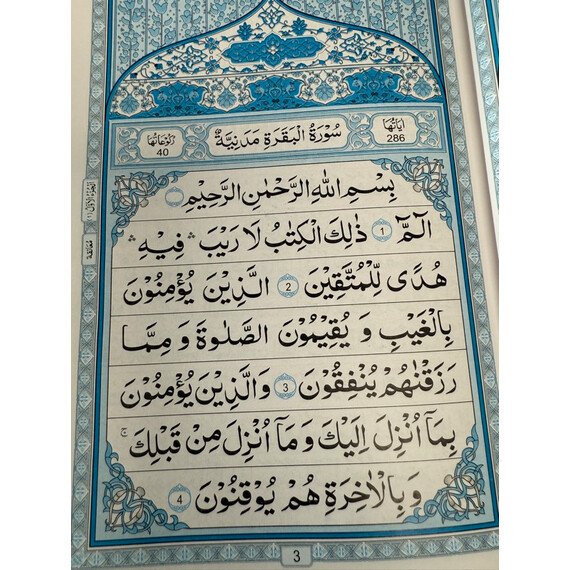 سُوْرَةُ الْبَقَرَةِ مَدَنِيَّةٌ
اٰيَاتُهَا
286
رُكُوْعَاتُهَا
40
بِسْمِ اللّٰهِ الرَّحْمٰنِ الرَّحِيْمِ
الٓمّٓ 1 ذٰلِكَ الْكِتٰبُ لَا رَيْبَ ۛ فِيْهِ ۛ
هُدًى لِّلْمُتَّقِيْنَ 2 الَّذِيْنَ يُؤْمِنُوْنَ
بِالْغَيْبِ وَ يُقِيْمُوْنَ الصَّلٰوةَ وَ مِمَّا
رَزَقْنٰهُمْ يُنْفِقُوْنَ 3 وَالَّذِيْنَ يُؤْمِنُوْنَ
بِمَاۤ اُنْزِلَ اِلَيْكَ وَ مَاۤ اُنْزِلَ مِنْ قَبْلِكَ ۚ
وَ بِالْاٰخِرَةِ هُمْ يُوْقِنُوْنَ 4
مُعَانَقَة
3